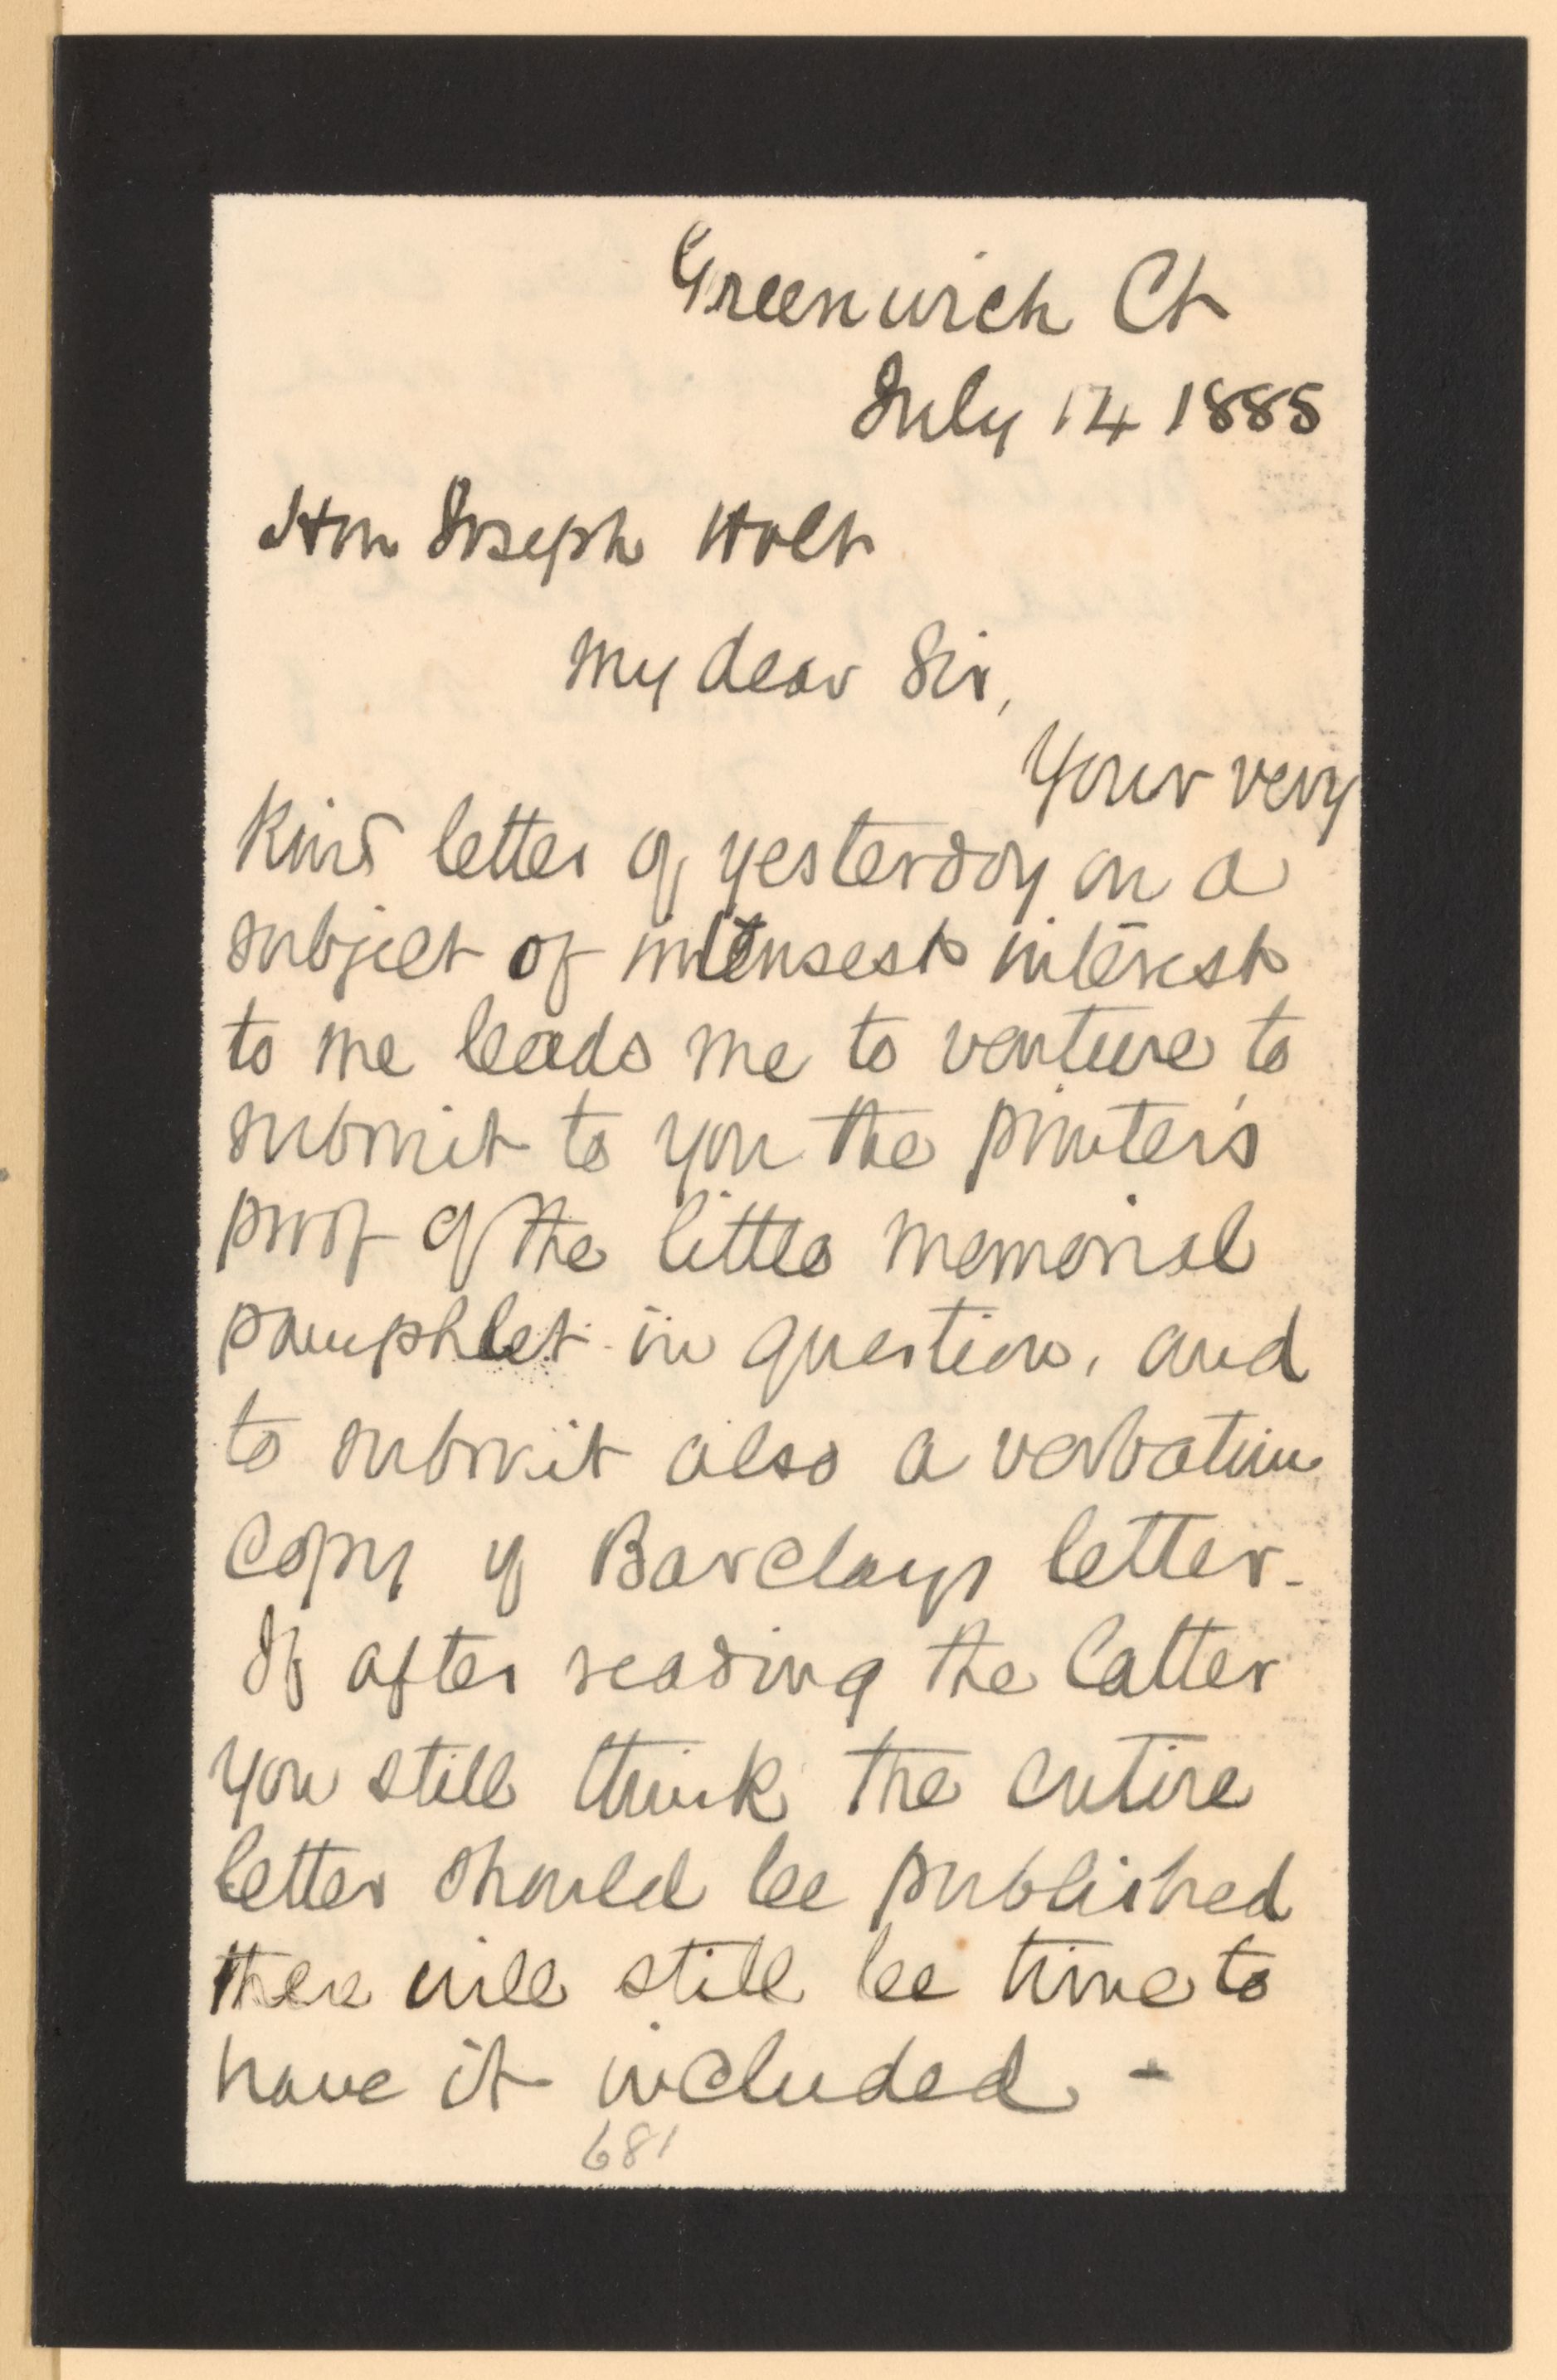 Greenwich Ct
July 14 1885
Hon Joseph Holt
My dear Sir,
Your very
kind letter of yesterday on a
subject of intensest interest
to me leads me to venture to
submit to you the printer's
proof of the little memorial
pamphlet in question, and
to submit also a verbatim
copy of Barclays letter -
If after reading the latter
you still think the entire
letter should be published
there will still be time to
have it included -
681